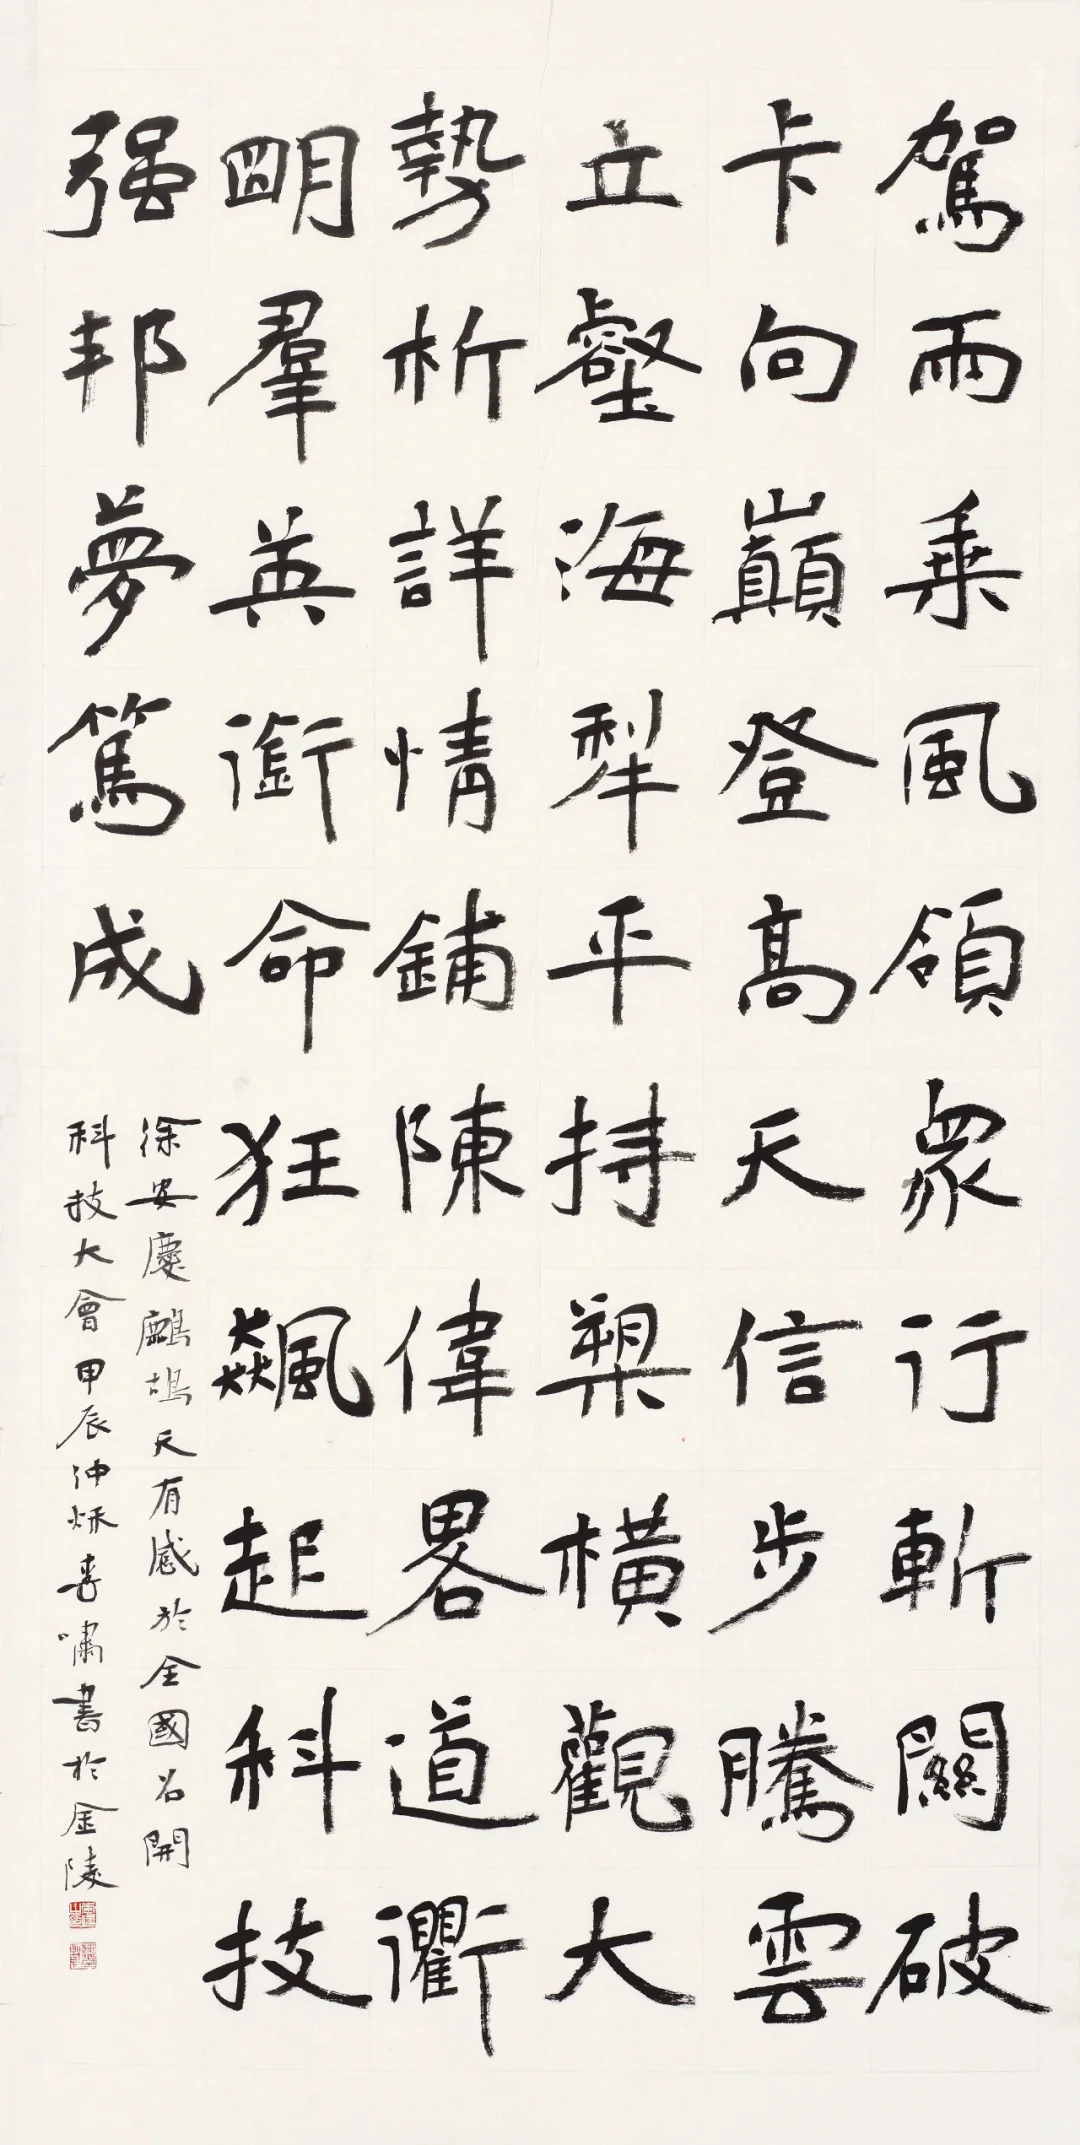 駕雨乘風領衆行斬關破
卡向巔登高天信步騰雲
立壑海犁平持槊橫觀大
勢析詳情鋪陳偉畧道衢
明羣英銜命狂飆起科技
强邦夢篤成
徐安慶鷓鴣天有感於全國召開
科技大會甲辰仲秌春嘯書於金陵